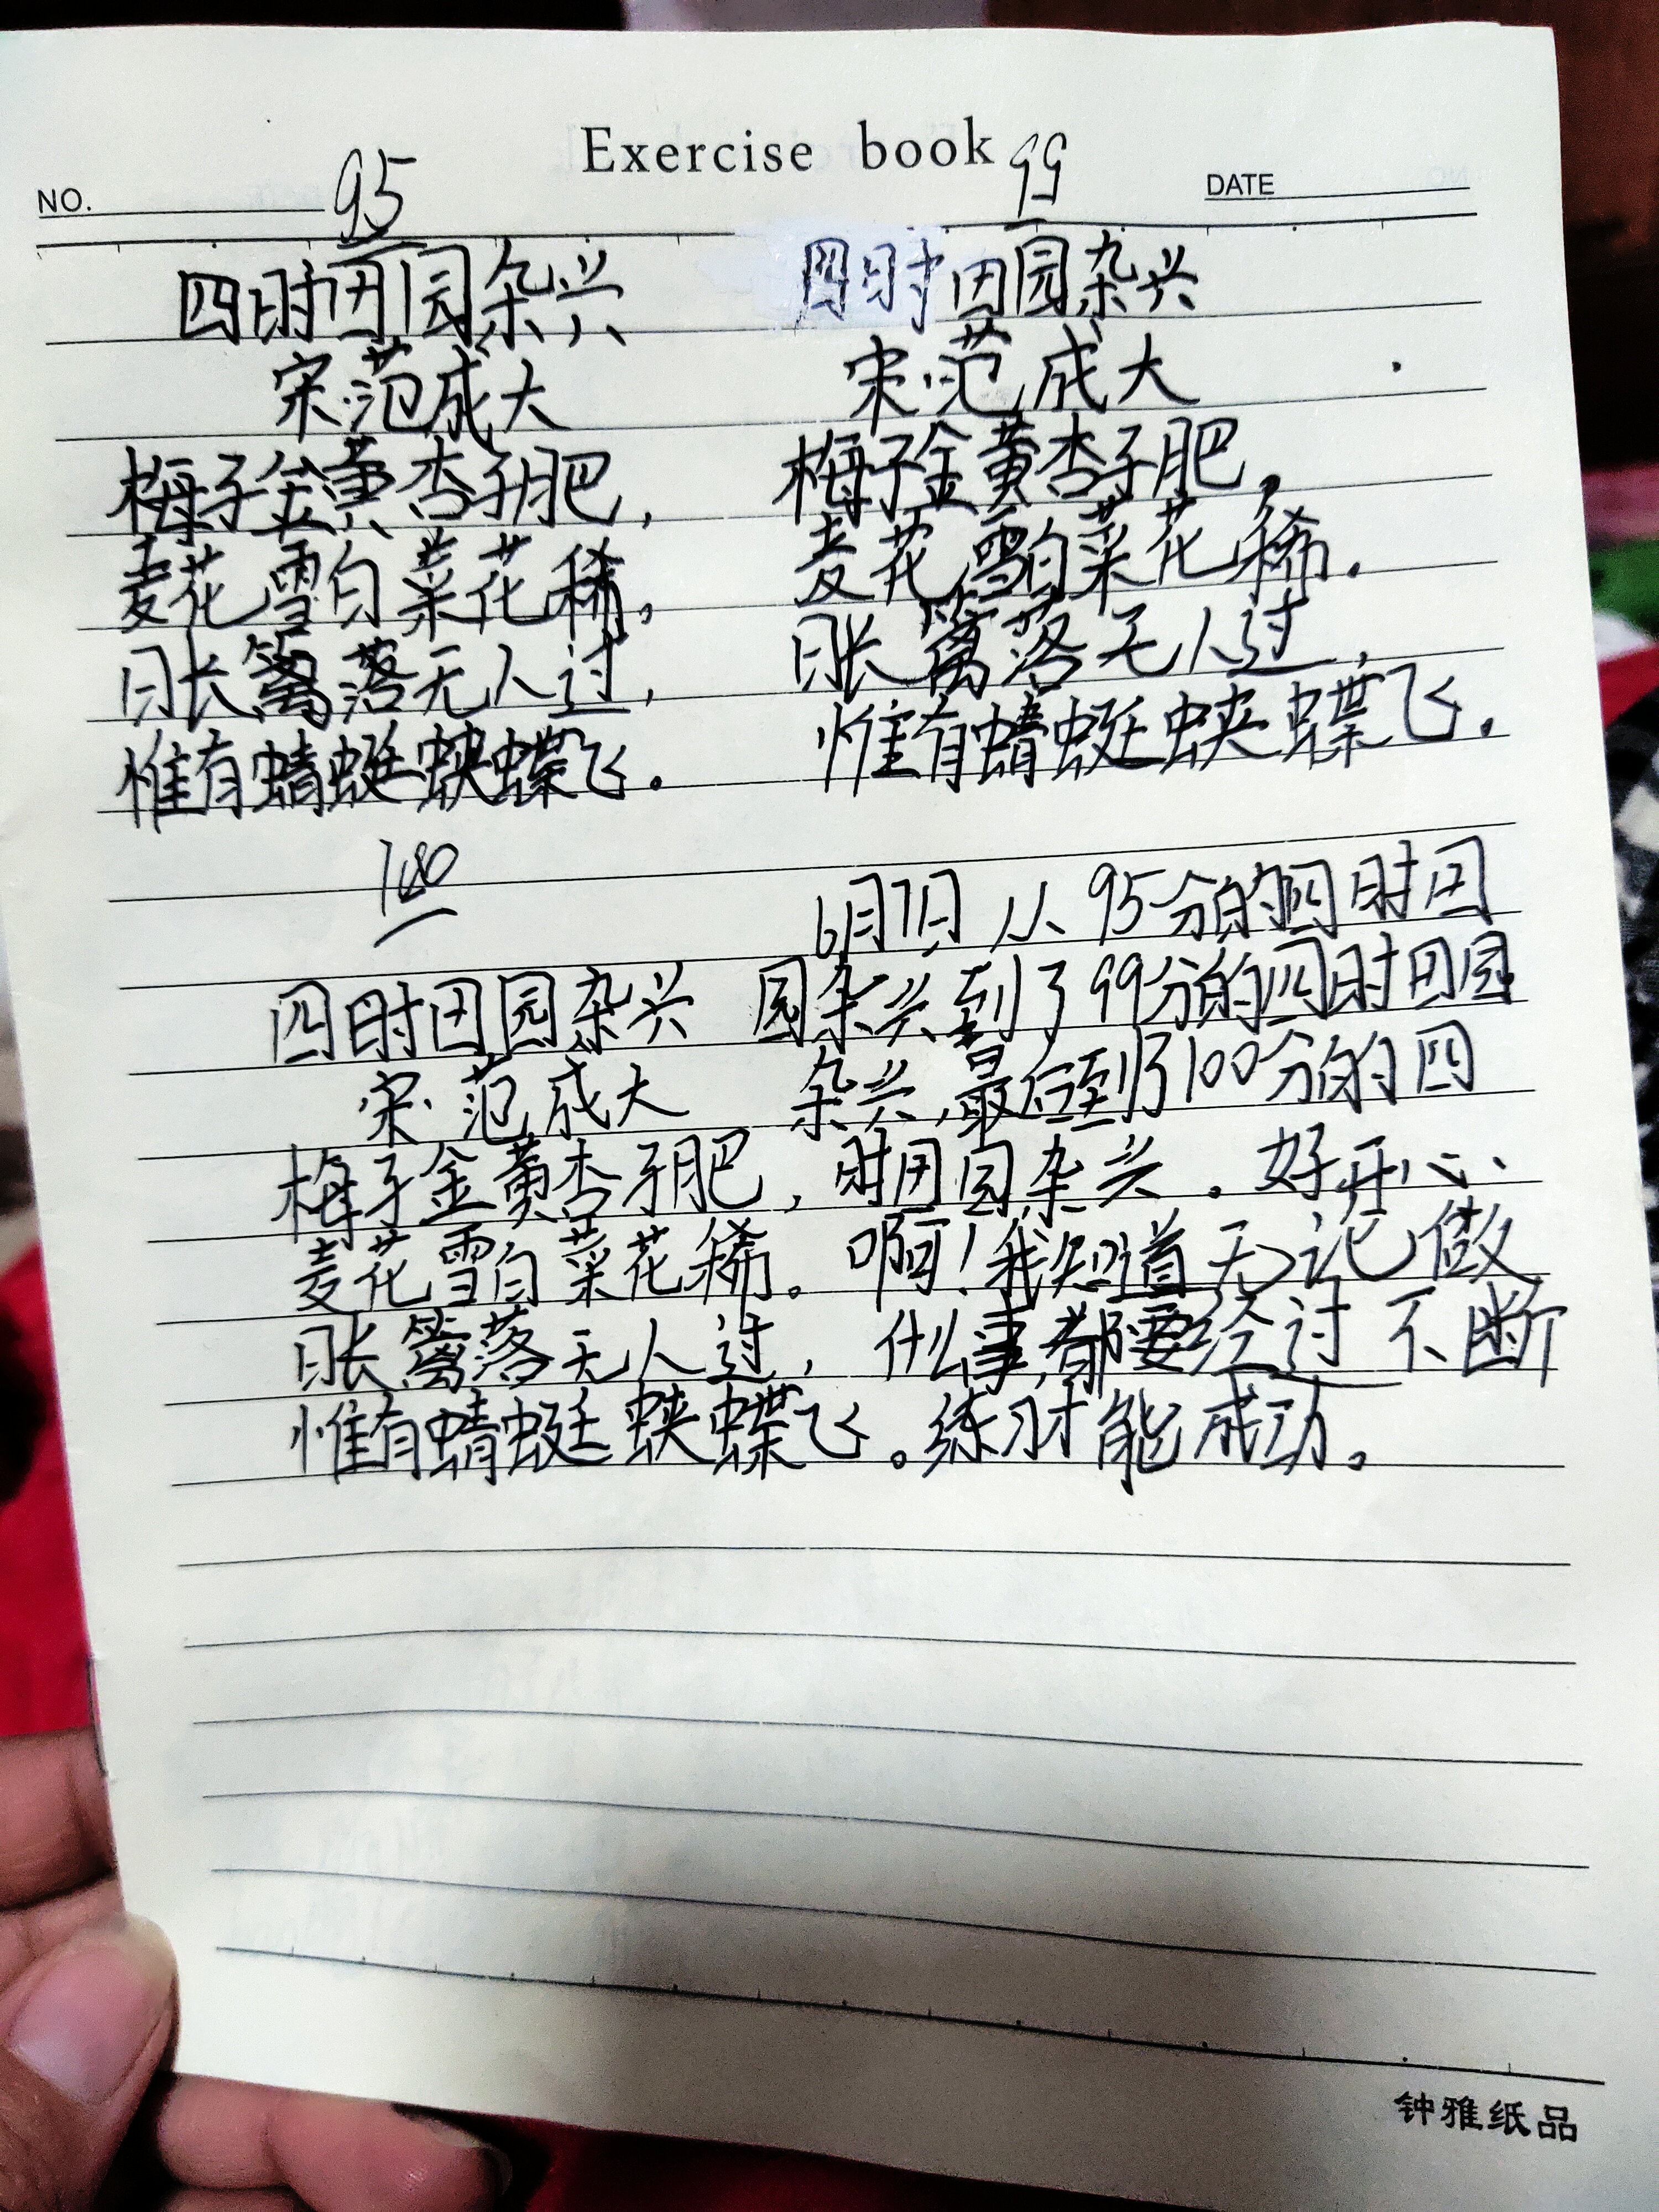 Exercise book
NO.
DATE
95
四时田园杂兴
宋·范成大
梅子金黄杏子肥,
麦花雪白菜花稀。
日长篱落无人过,
惟有蜻蜓蛱蝶飞。
99
四时田园杂兴
宋·范成大
梅子金黄杏子肥,
麦花雪白菜花稀.
日长篱落无人过,
惟有蜻蜓蛱蝶飞.
100
四时田园杂兴
宋·范成大
梅子金黄杏子肥,
麦花雪白菜花稀。
日长篱落无人过,
惟有蜻蜓蛱蝶飞。
6月7日 从95分的四时田
园杂兴到了99分的四时田园
杂兴,最后到了100分的四
时田园杂兴.好开心
啊!我知道无论做
什么事,都要经过不断
练习才能成功。
钟雅纸品